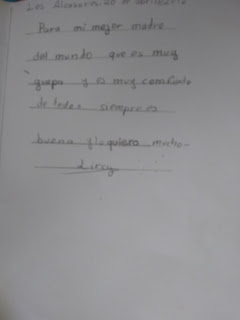 Los Alcazares 20 
Para mi mejor madre
del mundo que es muy
guapa y es muy
de todas siempre es
buena y la quiero mucho.